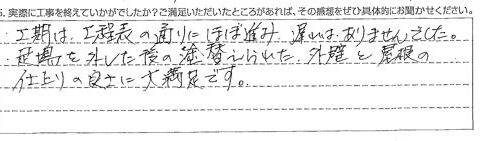 5. 実際に工事を終えていかがでしたか?ご満足いただいたところがあれば、その感想をぜひ具体的にお聞かせください。
・工期は、工程表の通りにほぼ進み、遅れはありませんでした。
・足場を外した後の塗替えられた、外壁と屋根の
仕上りの良さに大満足です。